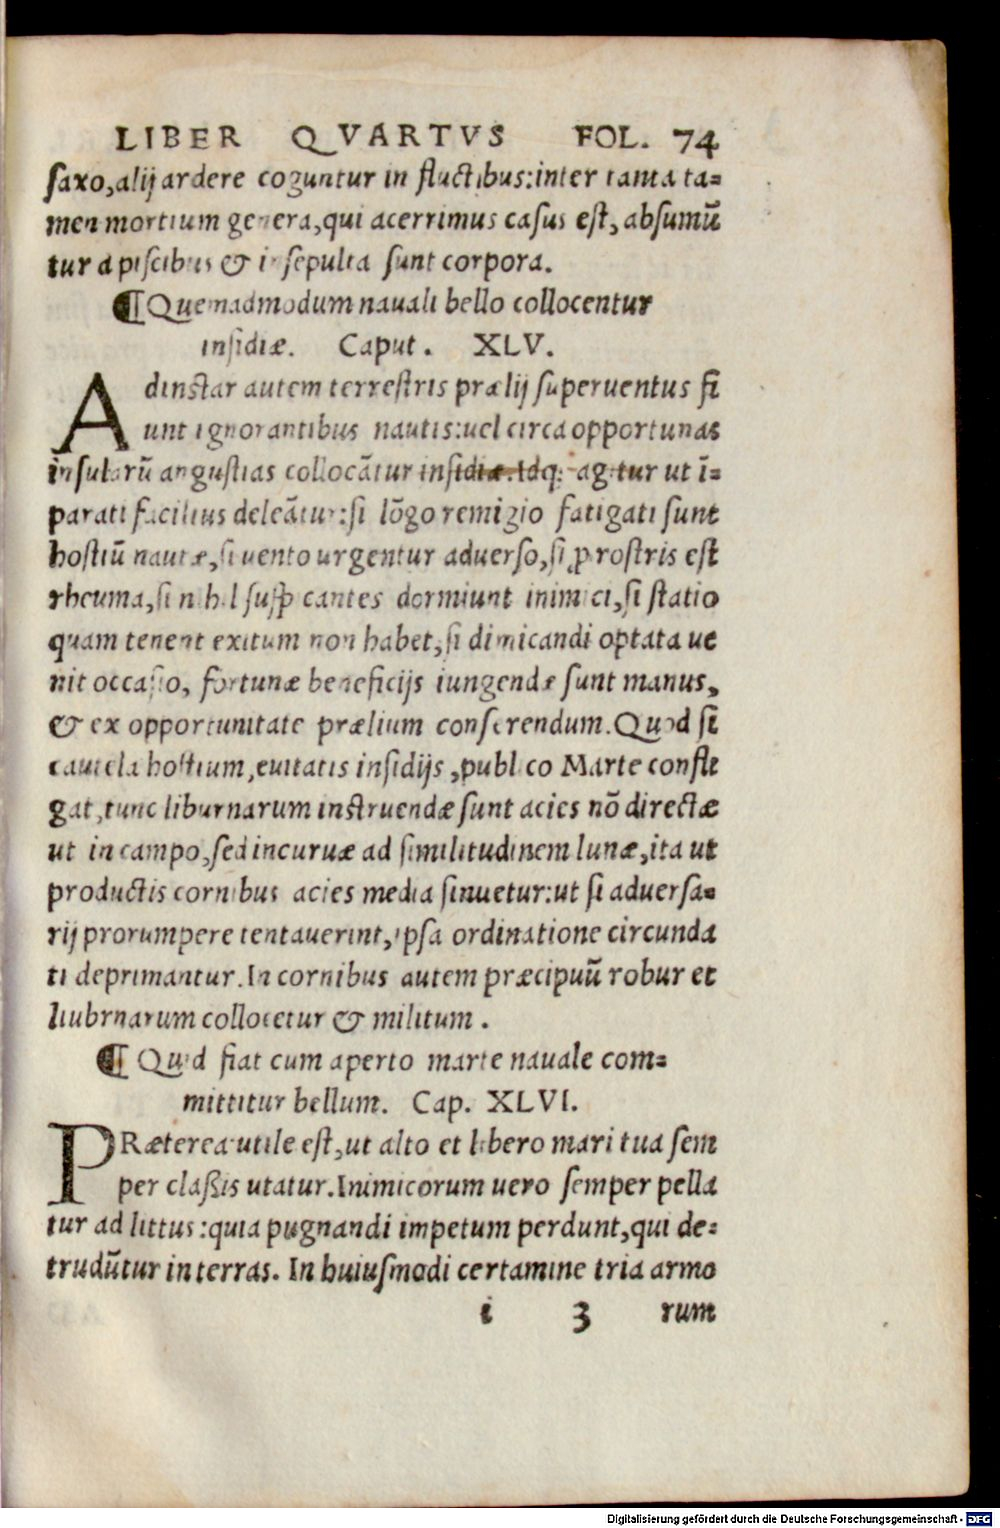 LIBER QVARTVS FOL. 74
saxo,alij ardere coguntur in fluctibus:inter tanta ta=
men mortium genera,qui acerrimus casus est, absumũ
tur a piscibus & insepulta sunt corpora.
¶Quemadmodum nauali bello collocentur
insidiæ. Caput. XLV.
Adinstar autem terrestris prælij superuentus fi
unt ignorantibus nautis:uel circa opportunas
insularũ angustias collocãtur insidiæ.Idq; agitur ut ĩ=
parati facilius deleãtur:si lõgo remigio fatigati sunt
hostiũ nautæ,si uento urgentur aduerso,si ꝓ rostris est
rheuma,si nihil suspicantes dormiunt inimici,si statio
quam tenent exitum non habet,si dimicandi optata ue
nit occasio, fortunæ beneficijs iungendæ sunt manus,
& ex opportunitate prælium conserendum.Quod si
cautela hostium,euitatis insidijs,publico Marte confli
gat,tunc liburnarum instruendæ sunt acies nõ directæ
ut in campo,sed incuruæ ad similitudinem lunæ,ita ut
productis cornibus acies media sinuetur:ut si aduersa=
rij prorumpere tentauerint,ipsa ordinatione circunda
ti deprimantur.In cornibus autem præcipuũ robur et
liubrnarum collocetur & militum.
¶ Quid fiat cum aperto marte nauale com=
mittitur bellum. Cap. XLVI.
PRæterea utile est,ut alto et libero mari tua sem
per claßis utatur.Inimicorum uero semper pella
tur ad littus:quia pugnandi impetum perdunt,qui de=
trudũtur in terras. In huiusmodi certamine tria armo
i 3 rum
Digitalisierung gefördert durch die Deutsche Forschungsgemeinschaft - DFG